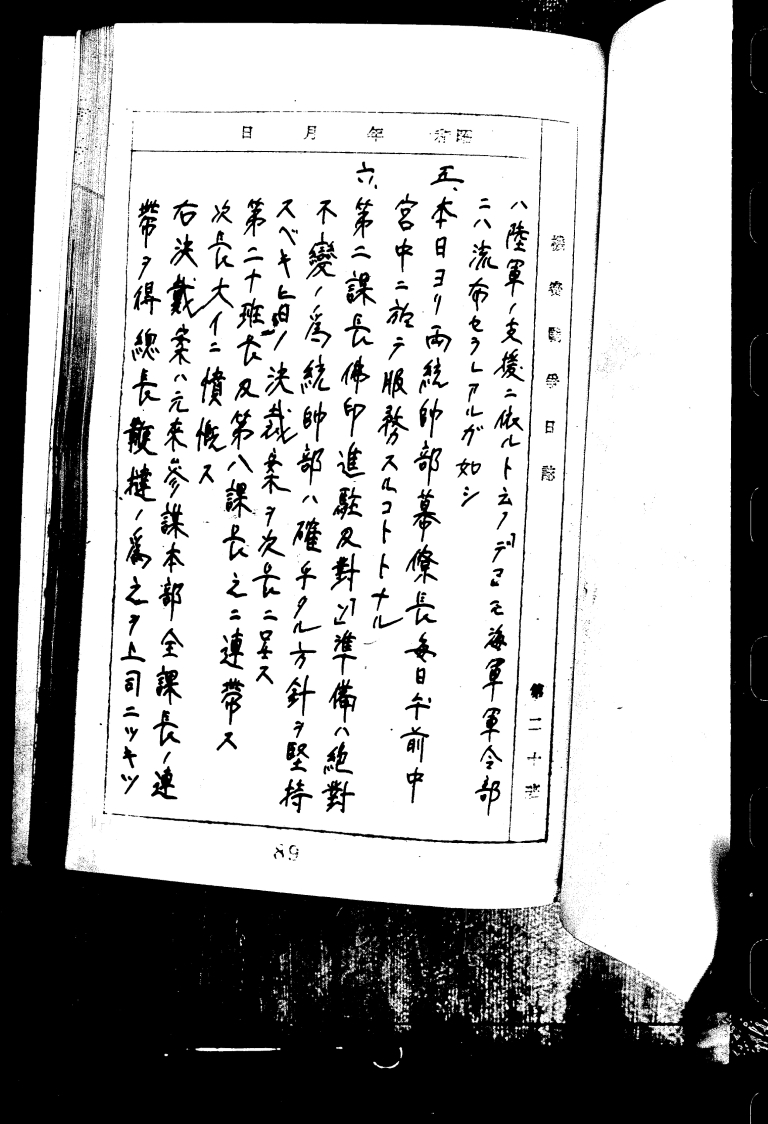 機密戰爭日誌
第二十班
昭和 年 月 日
ハ陸軍ノ支援ニ依ルト云フ「デマ」モ海軍軍令部
ニハ流布セラレアルガ如シ
五、本日ヨリ両統帥部幕僚長毎日午前中
宮中ニ於テ服務スルコトトナル
六、第二課長佛印進駐及対「ソ」準備ハ絶対
不變ノ為統帥部ハ確乎タル方針ヲ堅持
スベキヒ旨ノ決裁案ヲ次長ニ呈ス
第二十班長及第八課長之ニ連帯ス
次長大イニ憤慨ス
右決戴案ハ元来参謀本部全課長ノ連
帯ヲ得總長鞭撻ノ為之ヲ上司ニツキツ
89